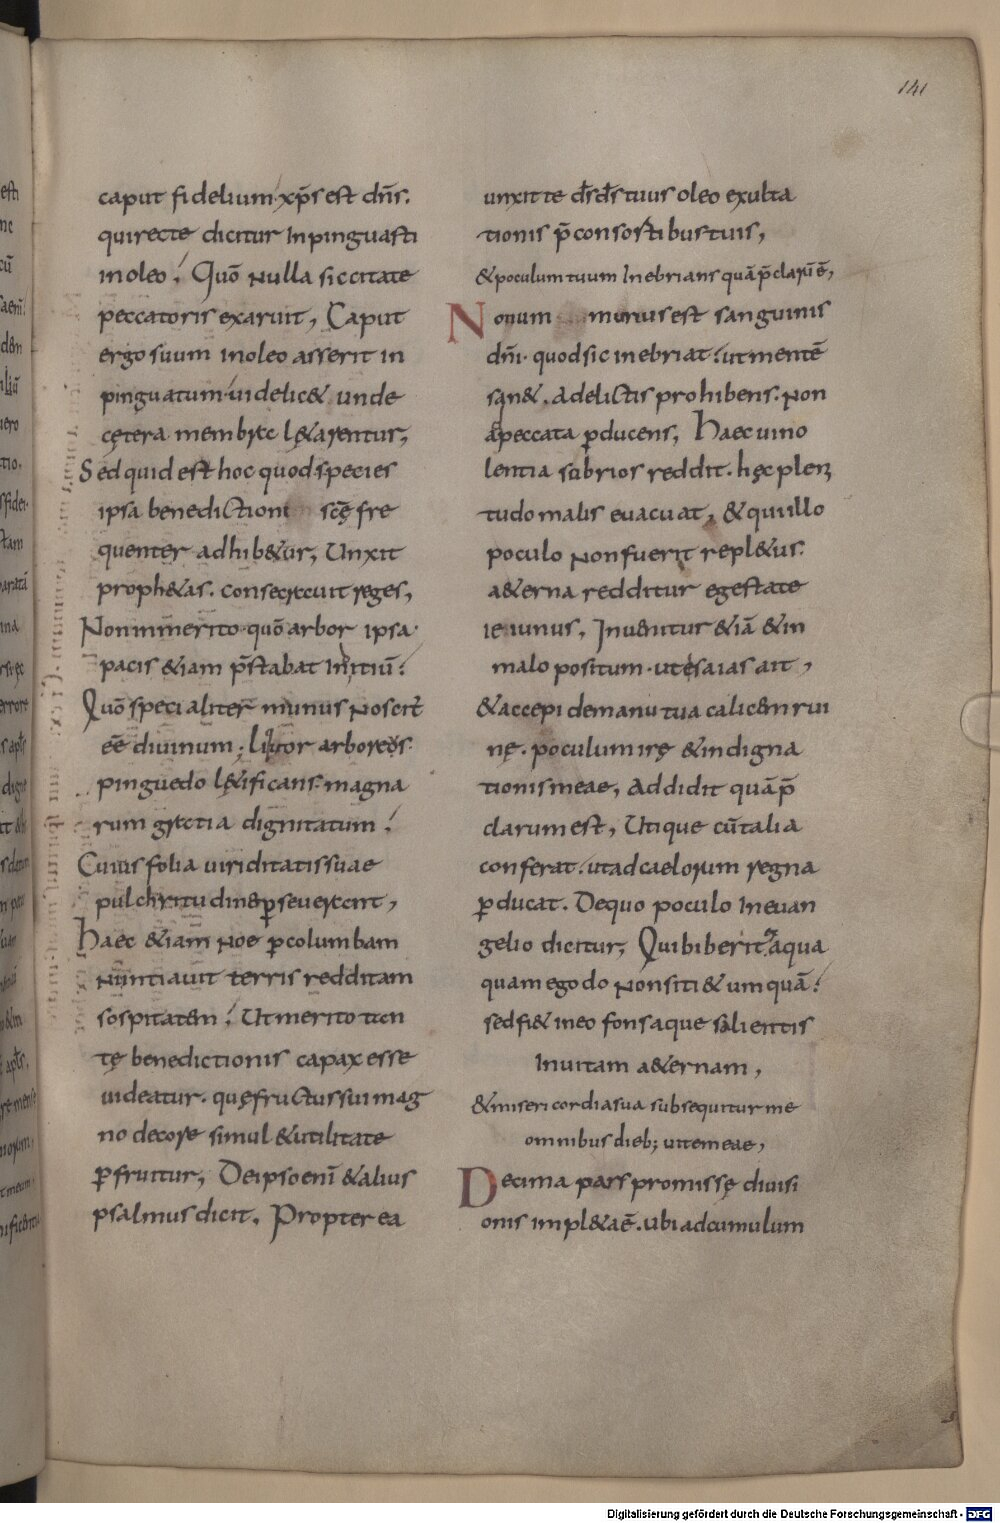 141
caput fidelium xp̄s est dn̄s.
qui recte dicitur Inpinguasti
in oleo. Quō Nulla siccitate
peccatoris exaruit, Caput
ergo suum in oleo asserit in
pinguatum uidelic& unde
cętera membra lę&arentur,
Sed quid est hoc quod species
ipsa benediction scę̄ fre
quenter adhib&ur, Unxit
proph&as. consecrauit reges,
Non inmerito quō arbor ipsa
pacis &iam p̄stabat Initiū.
Quō specialiter munus Noscit̄
eē̄ diuinum, liquor arboreos
pinguedo lę&ificans magna
rum gratia dignitatum.
Cuius folia uiriditatis suae
pulchritudin& perseuerant,
Haec &iam Noe p̄ columbam
Nuntiauit terris redditam
sospitatem. Ut merito tan
tę benedictionis capax esse
uideatur. quę fructus sui mag
no decore simul &utilitate
p̄fruitur, De ipso enī &alius
psalmus dicit. Propterea
unxit te d̄s d̄s tuus oleo exulta
tionis p̄ consortibus tuis,
&poculum tuum Inebrians quā p̄clarū ē̄,
Nonum munus est sanguinis
dn̄i. quod sic inebriat. ut mentē
san&. A delictis prohibens. Non
a peccata p̄ducens, Haec uino
lentia sobrios reddit. hęc pleni
tudo malis euacuat, & qui illo
poculo Non fuerit repl&us.
a&erna redditur egestate
ieiunus, Inuenitur &iā &in
malo positum. ut esaias ait,
&accepi de manu tua calicem rui
nę. poculum irę &indigna
tionis meae, Addidit quā p̄
clarum est, Utique cū talia
conferat. ut ad caelorum regna
p̄ducat. De quo poculo In euan
gelio dicitur, Qui biberit aqua
quam ego do Non siti& umquā.
sed fi& in eo fons aque salientis
Inuitam a&ernam,
&misericordia sua subsequitur me
omnibus dieb; uite meae,
Decima pars promissę diuisi
onis impl&a ē̄. ubi ad cumulum
Digitalisierung gefördert durch die Deutsche Forschungsgemeinschaft - DFG